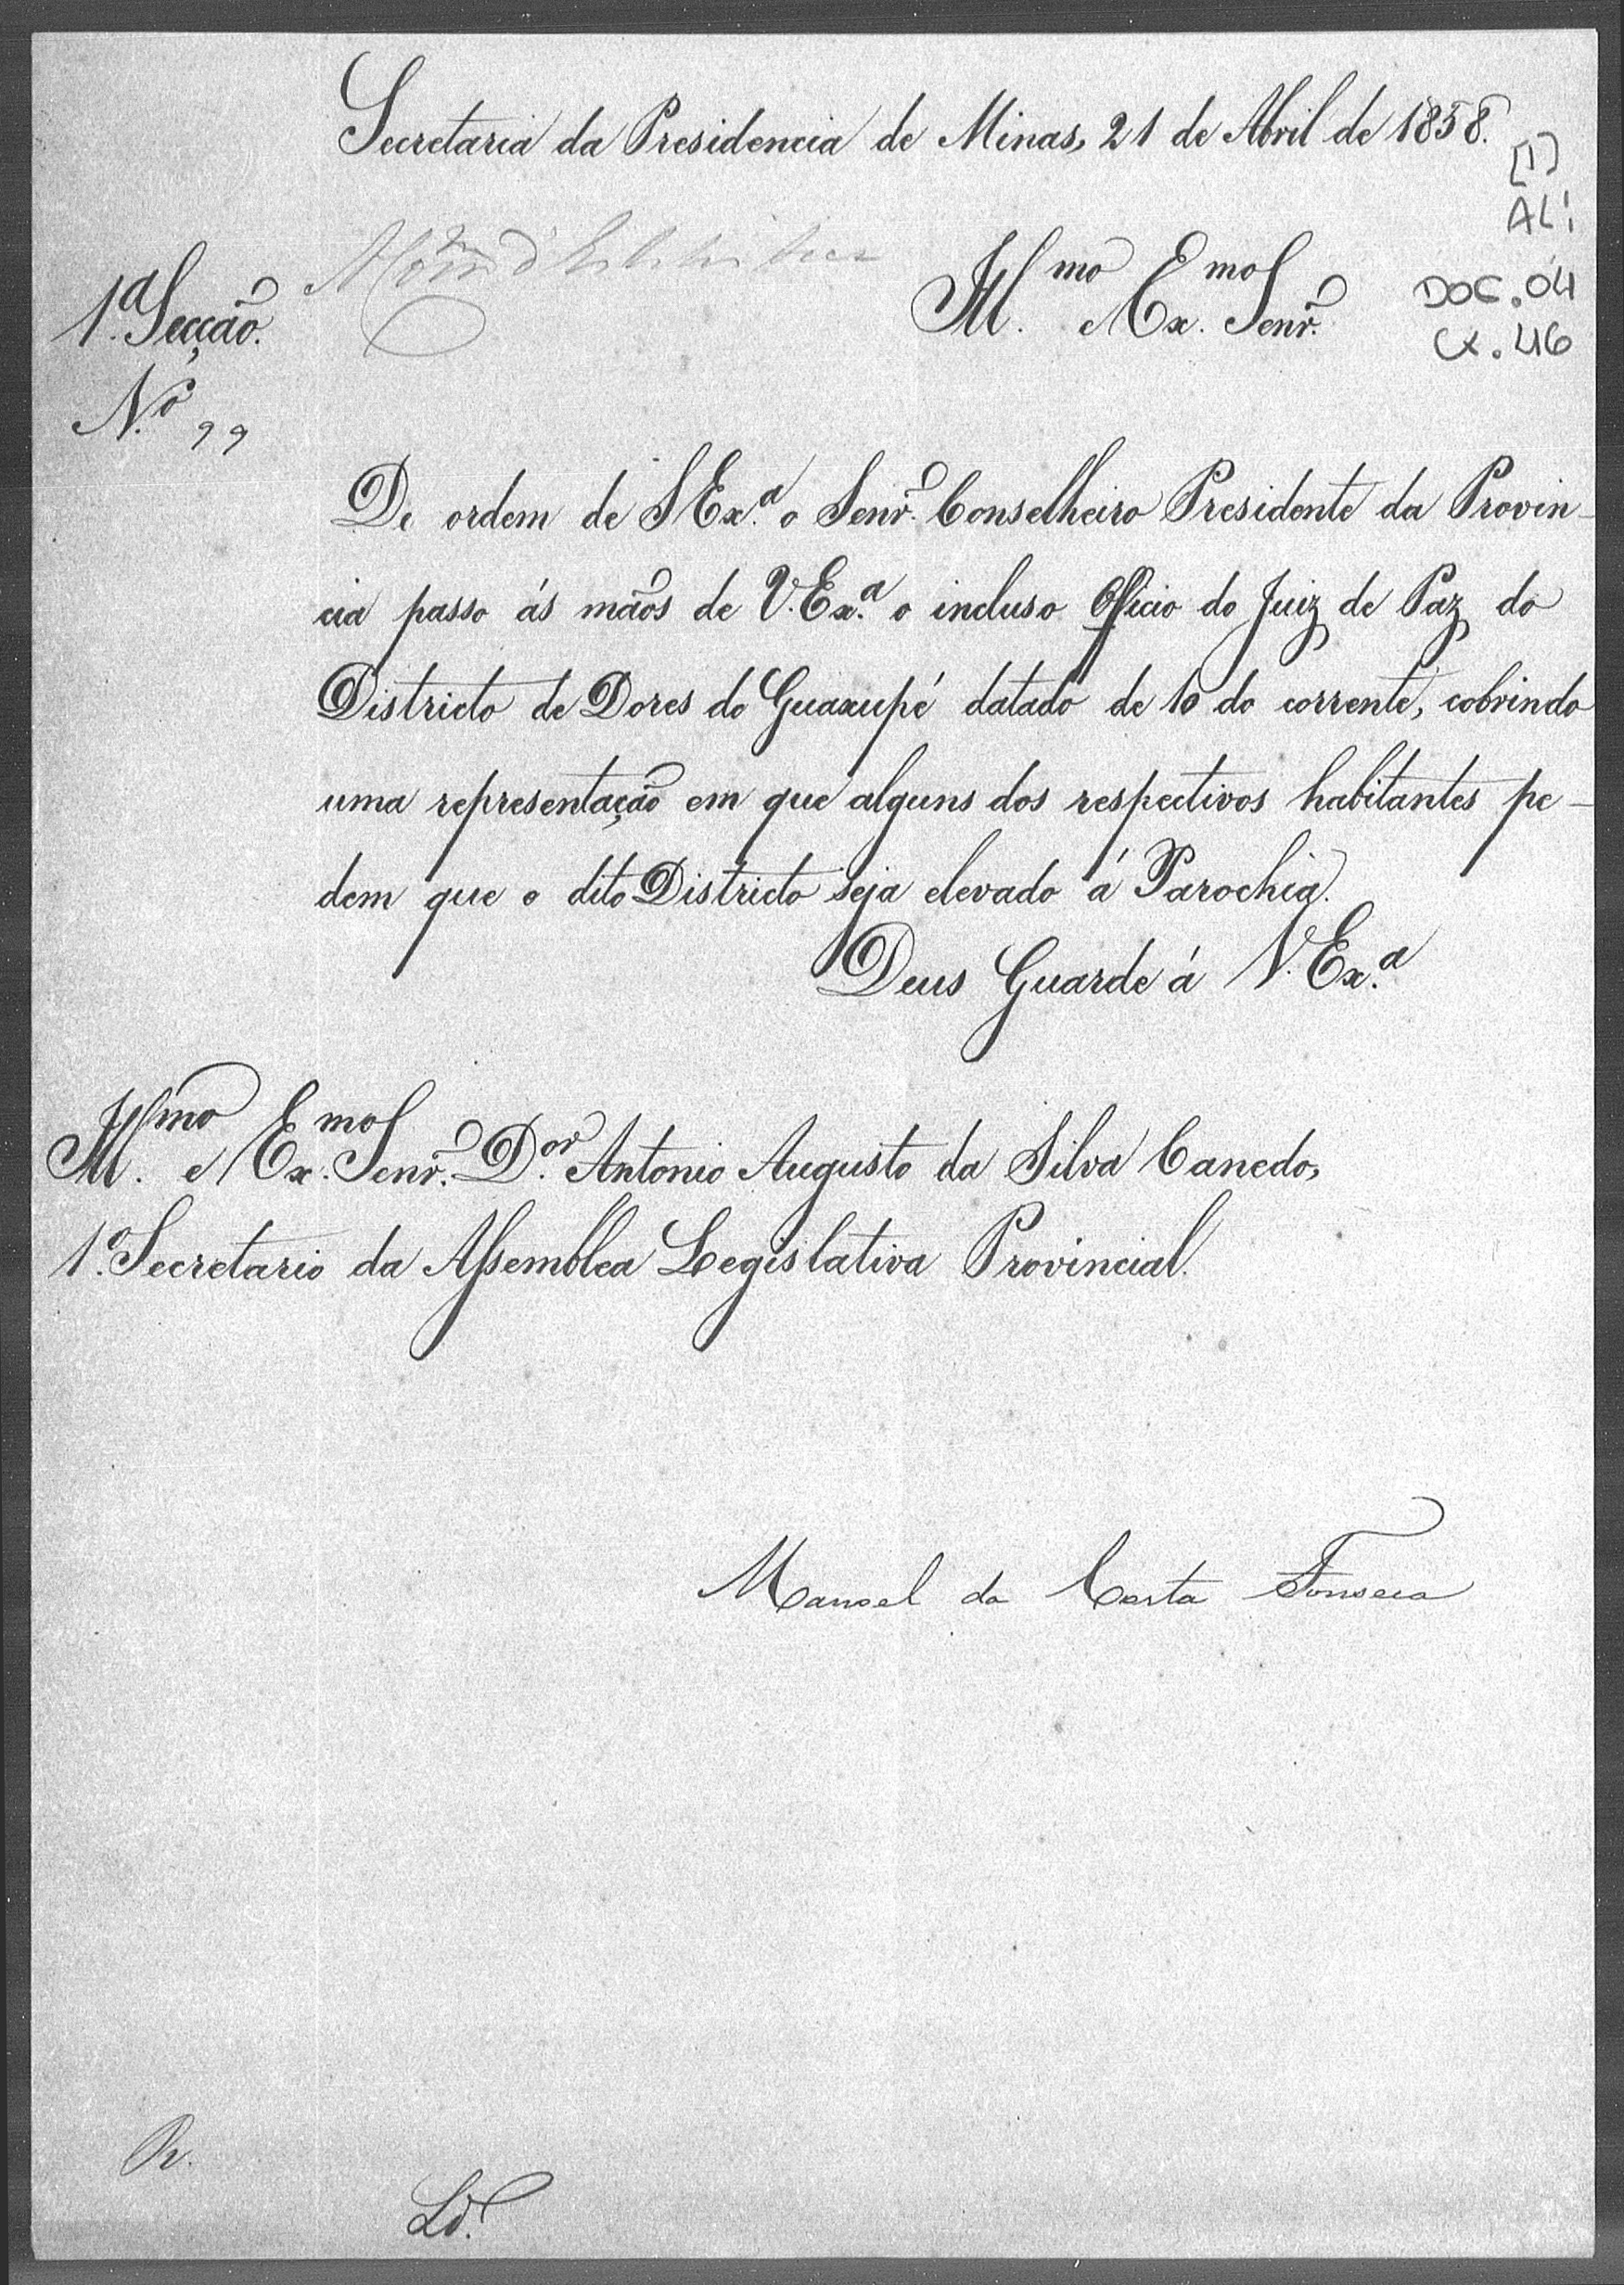 Secretaria da Presidencia de Minas, 21 de Abril de 1858.
[1]
AL1
DOC. 04
CX. 46
1.ª Secção.
N.º 99
Ill.mo e Ex.mo Senr.
De ordem de S Ex.ª o Senr. Conselheiro Presidente da Provin-
cia passo ás mãos de V. Ex.ª o incluso Officio do Juiz de Paz do
Districto de Dores do Guaxupé datado de 10 do corrente, cobrindo
uma representação em que alguns dos respectivos habitantes pe-
dem que o dito Districto seja elevado á Parochia.
Deus Guarde á V. Ex.ª
Ill.mo e Ex.mo Senr. D.or Antonio Augusto da Silva Canedo,
1.º Secretario da Assemblea Legislativa Provincial.
Manoel da Costa Fonseca